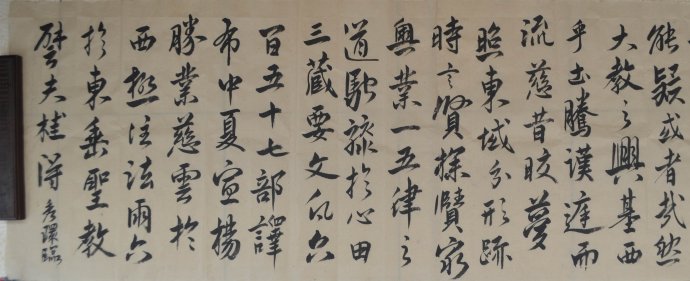 能疑或者哉然
大教之興基西
乎土騰漢庭而
流慈昔皎夢
照東域分形跡
時言賢探賾窮
奧業一五律之
道馳驟於心田
三藏要文凡六
百五十七部譯
布中夏宣揚
勝業慈雲於
西極注法雨六
於東垂聖教
譬夫桂得
臨